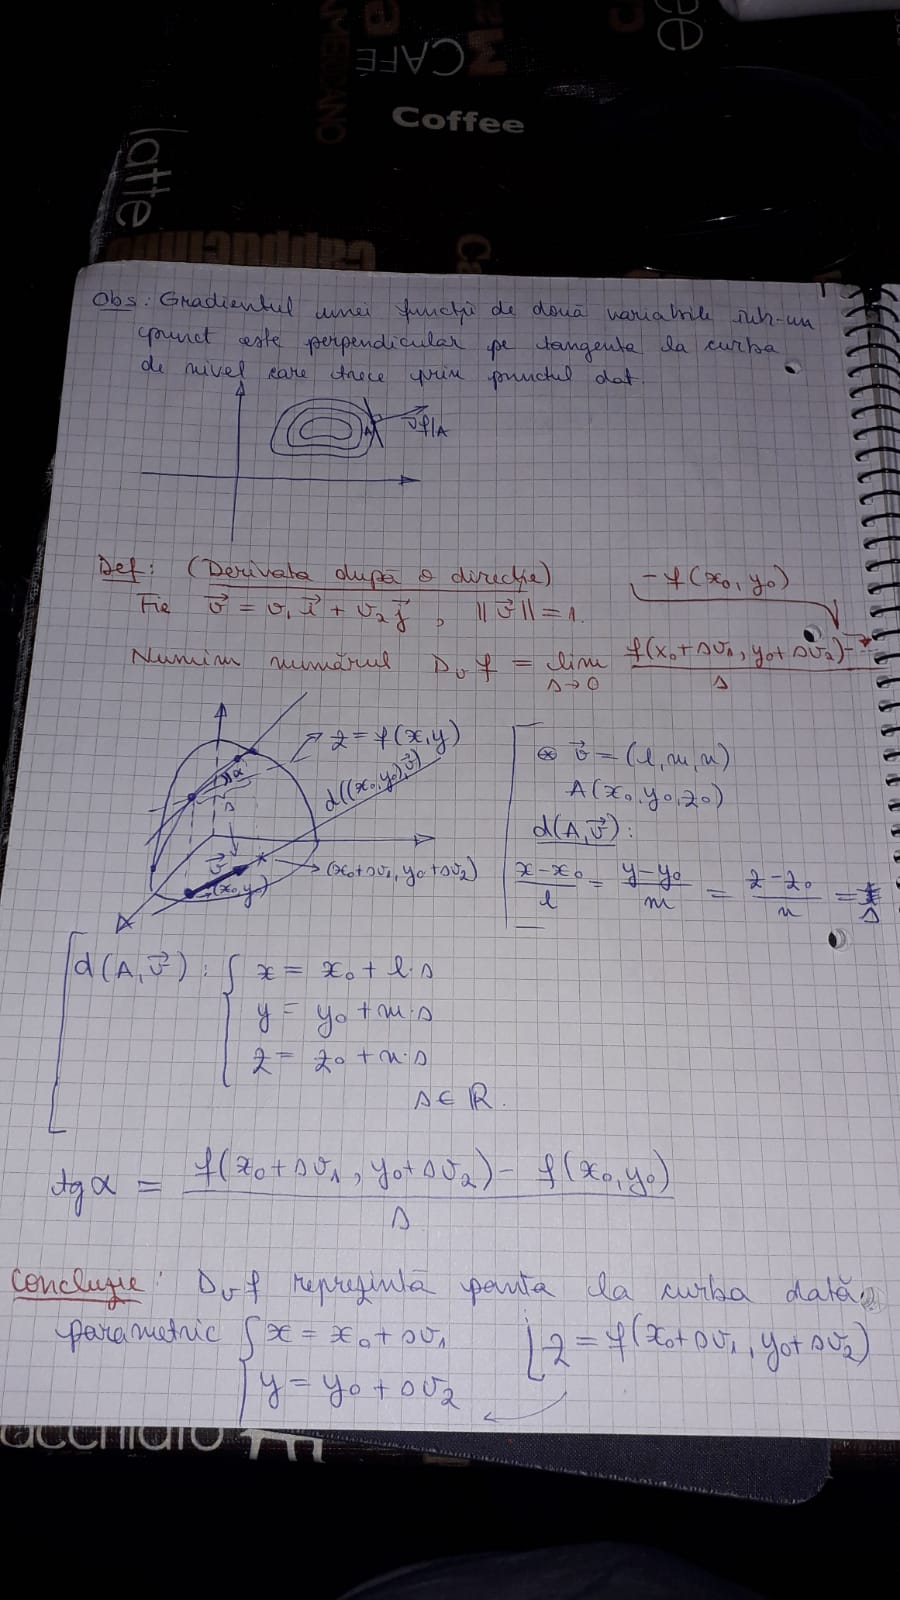 AMERICANO
CAFÉ
Coffee
latte
Cappuccino
Obs: Gradientul unei funcții de două variabile într-un
punct este perpendicular pe tangenta la curba
de nivel care trece prin punctul dat.
A
∇f|A
Def: (Derivata după o direcție)
-f(x₀, y₀)
Fie v⃗ = v₁i⃗ + v₂j⃗, ||v⃗|| = 1.
Numim numărul Dᵥf = lim s→0 f(x₀+sv₁, y₀+sv₂)- / s
z = f(x,y)
α
s
d((x₀,y₀),v⃗)
v⃗
(x₀,y₀)
(x₀+sv₁, y₀+sv₂)
⊛ v⃗ = (l,m,n)
A(x₀,y₀,z₀)
d(A,v⃗):
(x-x₀)/l = (y-y₀)/m = (z-z₀)/n = s
d(A,v⃗): { x = x₀ + l·s
y = y₀ + m·s
z = z₀ + n·s
s ∈ ℝ.
tg α = (f(x₀+sv₁, y₀+sv₂) - f(x₀,y₀))/s
Concluzie: Dᵥf reprezintă panta la curba dată
parametric { x = x₀ + sv₁
y = y₀ + sv₂
z = f(x₀+sv₁, y₀+sv₂)
acchiato